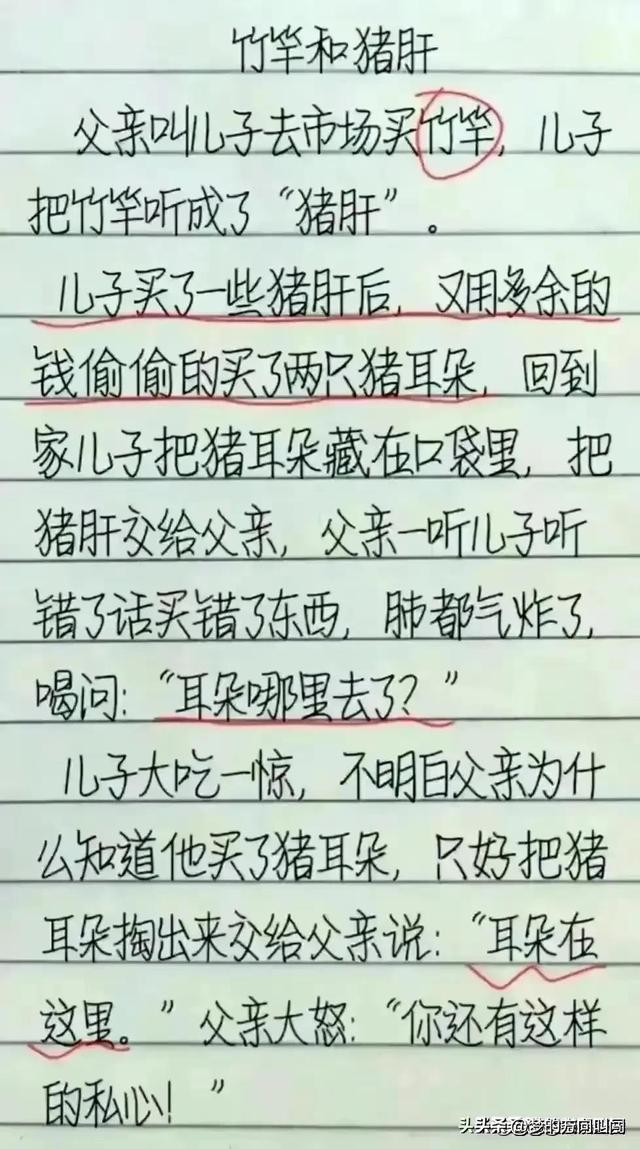 竹竿和猪肝
父亲叫儿子去市场买竹竿，儿子
把竹竿听成了“猪肝”。
儿子买了一些猪肝后，又用多余的
钱偷偷的买了两只猪耳朵，回到
家儿子把猪耳朵藏在口袋里，把
猪肝交给父亲，父亲一听儿子听
错了话买错了东西，肺都气炸了，
喝问：“耳朵哪里去了？”
儿子大吃一惊，不明白父亲为什
么知道他买了猪耳朵，只好把猪
耳朵掏出来交给父亲说：“耳朵在
这里。”父亲大怒：“你还有这样
的私心！”